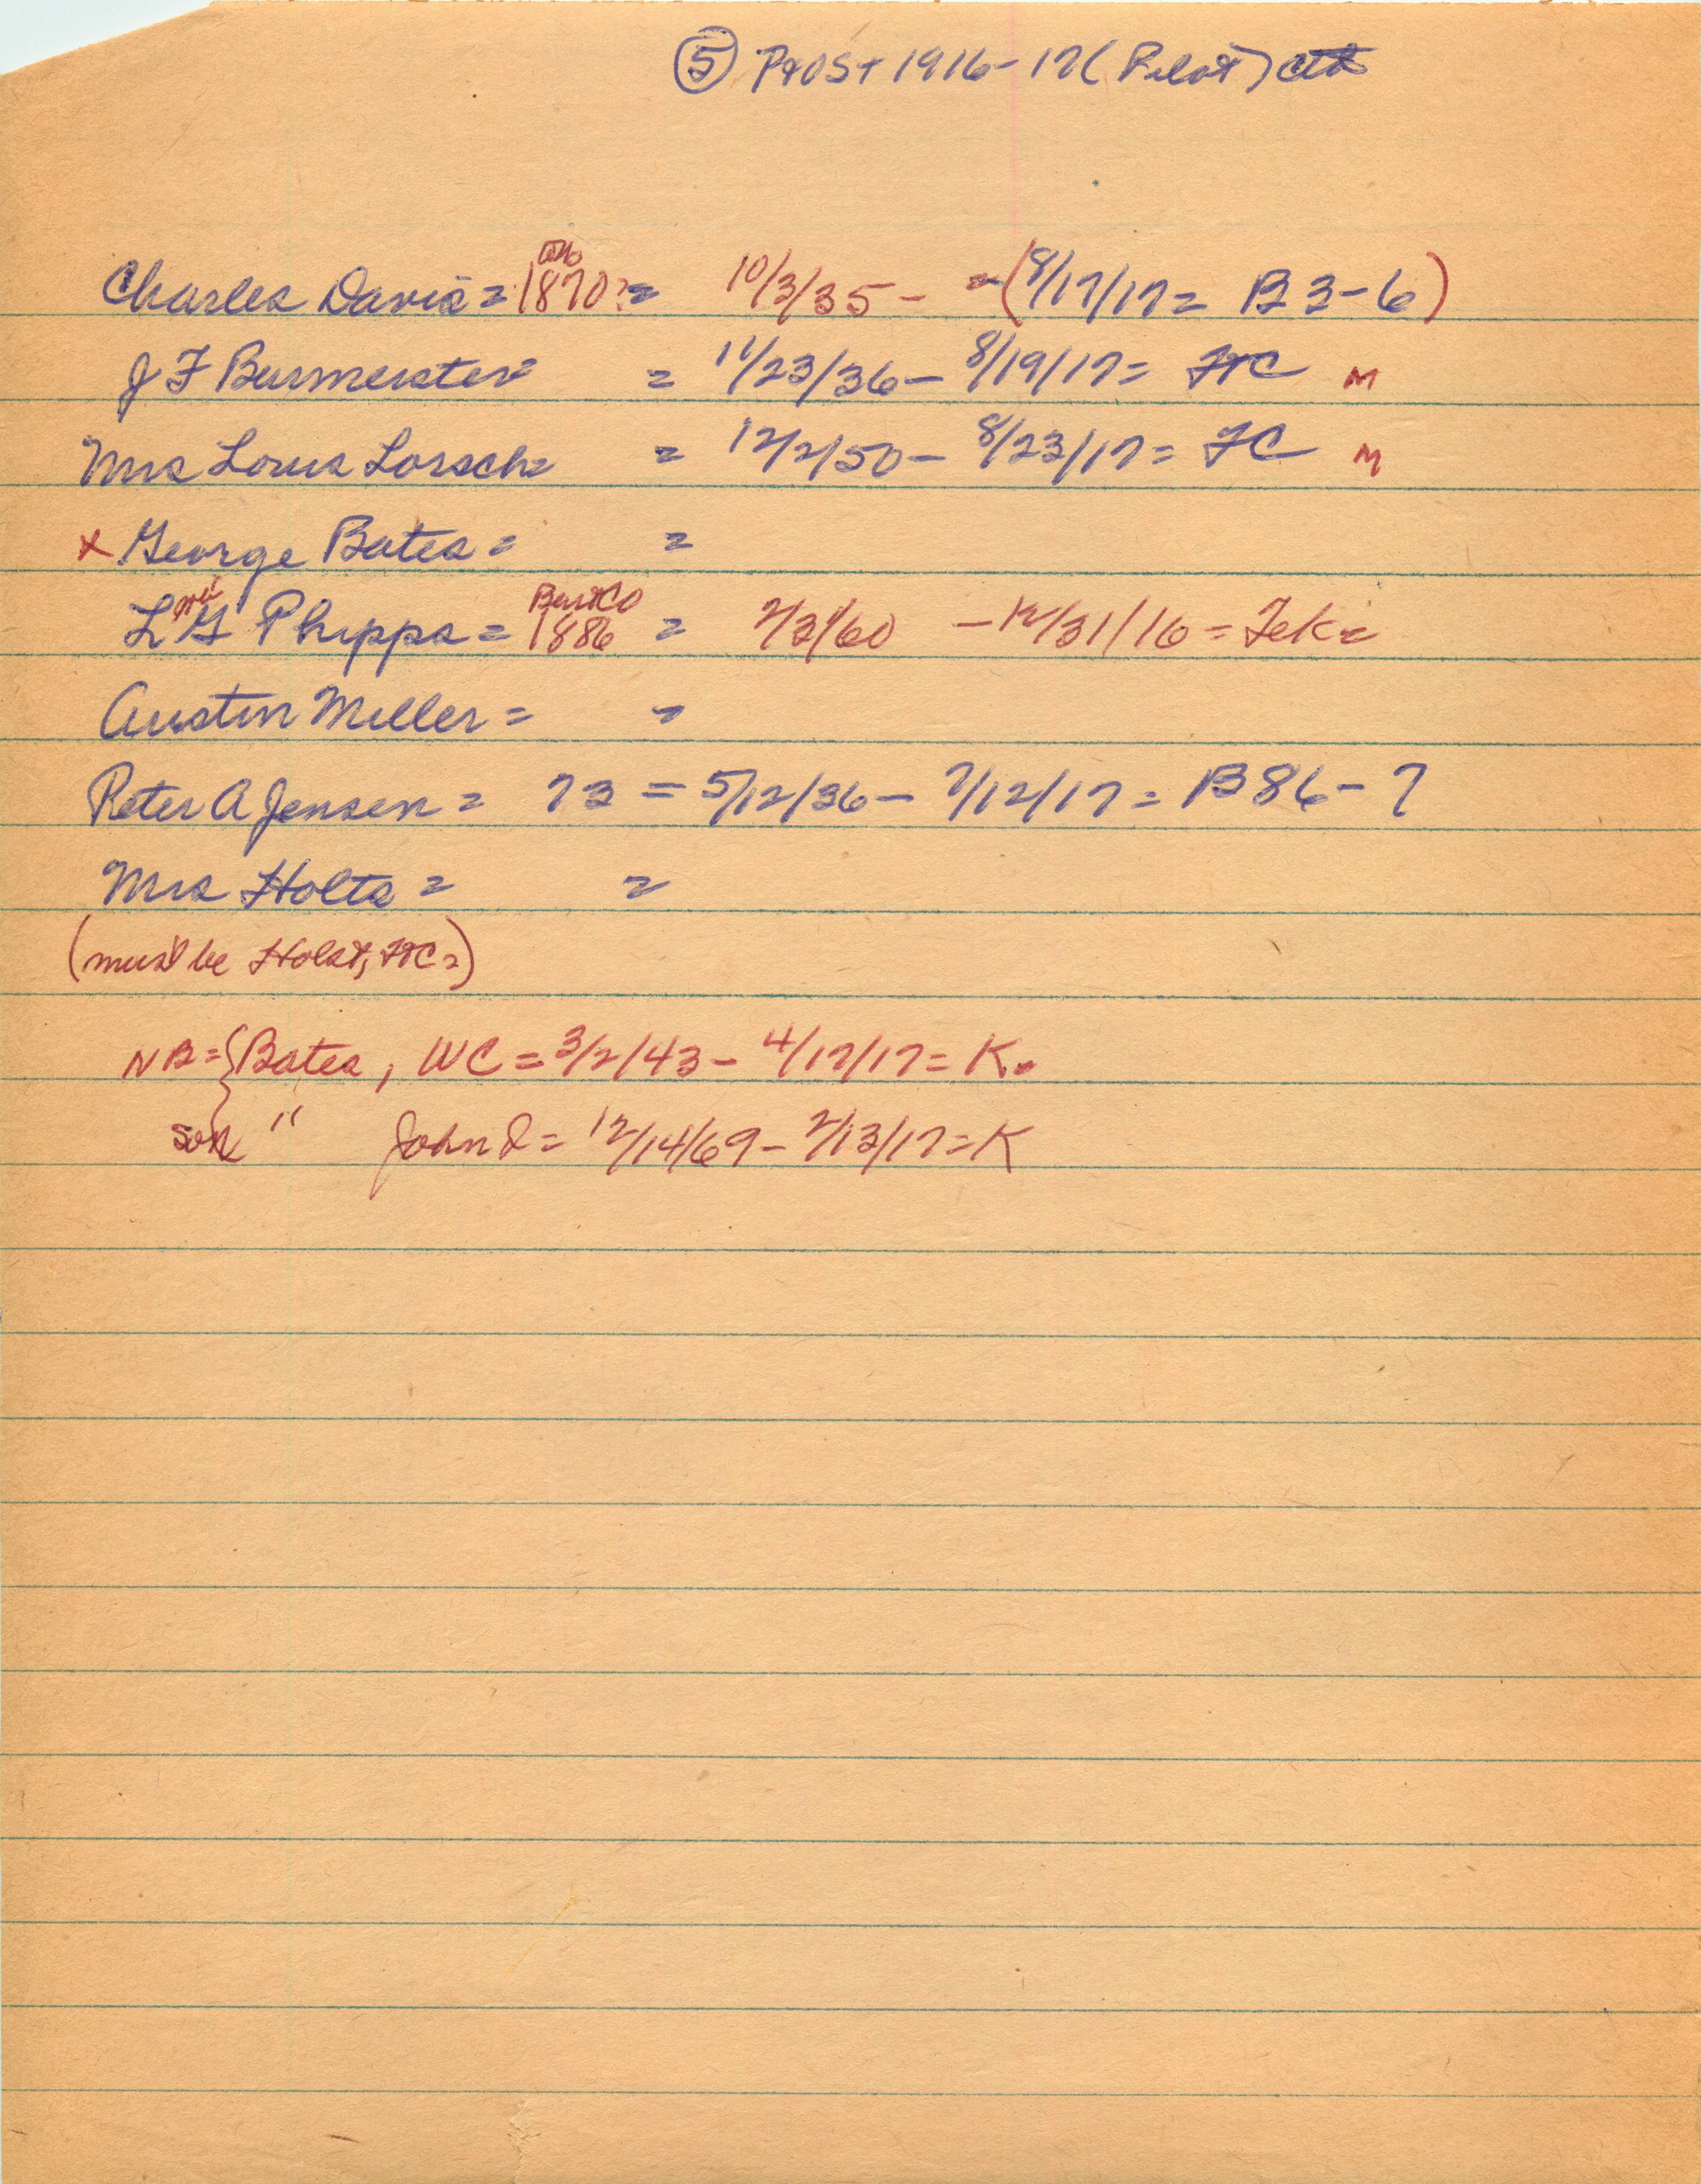 ⑤ P&OS+ 1916-17 (Pilot)
Charles Davis = 1870? = 10/3/35 - = (8/17/17 = B 3-6)
J F Burmeister = = 11/23/36 - 8/19/17 = FtC M
Mrs Louis Lorsch = = 12/2/50 - 8/23/17 = FC M
x George Bates = =
BurtCo
L G Phipps = 1886 = 2/3/60 - 12/31/16 = Tek =
Austin Miller = =
Peter A Jensen = 73 = 5/12/36 - 7/12/17 = B 86-7
Mrs Holts = =
(must be Holst, FtC =)
NB = { Bates, WC = 3/2/43 - 4/17/17 = K.
son " John I = 12/14/69 - 2/13/17 = K